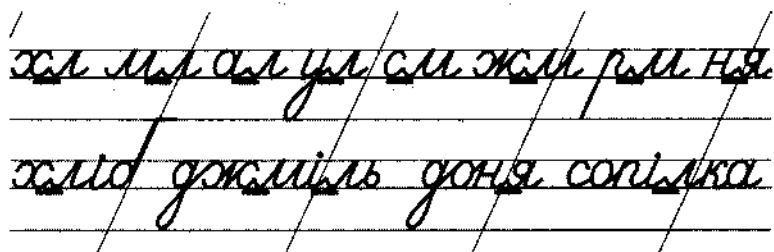 хл мл ал ул см жм рм ня
хліб джміль доня сопілка